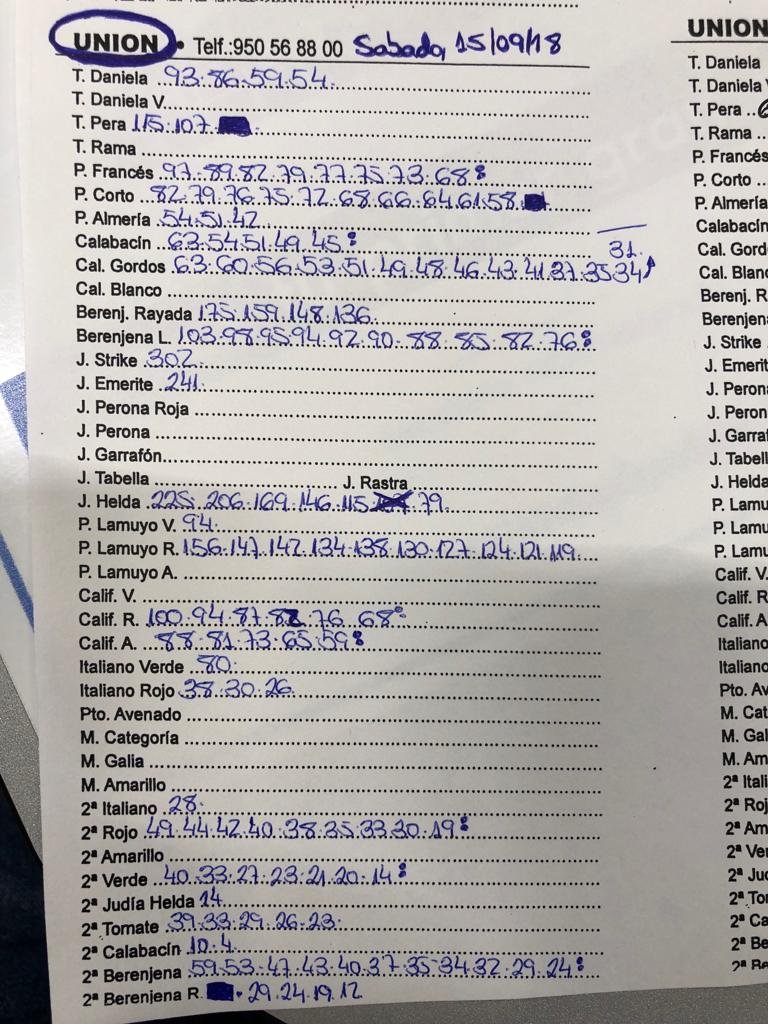 UNION • Telf.:950 56 88 00 Sabado, 15/09/18
T. Daniela 93.86.59.54.
T. Daniela V.
T. Pera 115.107
T. Rama
P. Francés 97.89.82.79.77.75.73.68:
P. Corto 82.79.76.75.72.68.66.64.61.58
P. Almería 54.51.42
Calabacín 63.54.51.49.45:
31.
Cal. Gordos 63.60.56.53.51.49.48.46.43.41.37.35.34
Cal. Blanco
Berenj. Rayada 175.159.148.136
Berenjena L. 103.98.95.94.92.90.88.85.82.76:
J. Strike 302.
J. Emerite 241.
J. Perona Roja
J. Perona
J. Garrafón
J. Tabella J. Rastra
J. Helda 225.206.169.146.115 79
P. Lamuyo V. 94.
P. Lamuyo R. 156.147.142.134.138.130.127.124.121.119
P. Lamuyo A.
Calif. V.
Calif. R. 100.94.87.82.76.68:
Calif. A. 88.81.73.65.59:
Italiano Verde 80.
Italiano Rojo 38.30.26
Pto. Avenado
M. Categoría
M. Galia
M. Amarillo
2ª Italiano 28.
2ª Rojo 49.44.42.40.38.35.33.30.19:
2ª Amarillo
2ª Verde 40.33.27.23.21.20.14:
2ª Judía Helda 14
2ª Tomate 39.33.29.26.23.
2ª Calabacín 10.4
2ª Berenjena 59.53.47.43.40.37.35.34.32.29.24:
2ª Berenjena R. 29.24.19.12
UNION
T. Daniela
T. Daniela
T. Pera
T. Rama
P. Francés
P. Corto
P. Almería
Calabacín
Cal. Gord
Cal. Blanc
Berenj. R
Berenjena
J. Strike
J. Emerit
J. Perona
J. Peron
J. Garraf
J. Tabell
J. Helda
P. Lamu
P. Lamu
P. Lamu
Calif. V.
Calif. R
Calif. A
Italiano
Italiano
Pto. Av
M. Cat
M. Gal
M. Am
2ª Itali
2ª Roj
2ª Am
2ª Ver
2ª Jud
2ª Tor
2ª Ca
2ª Be